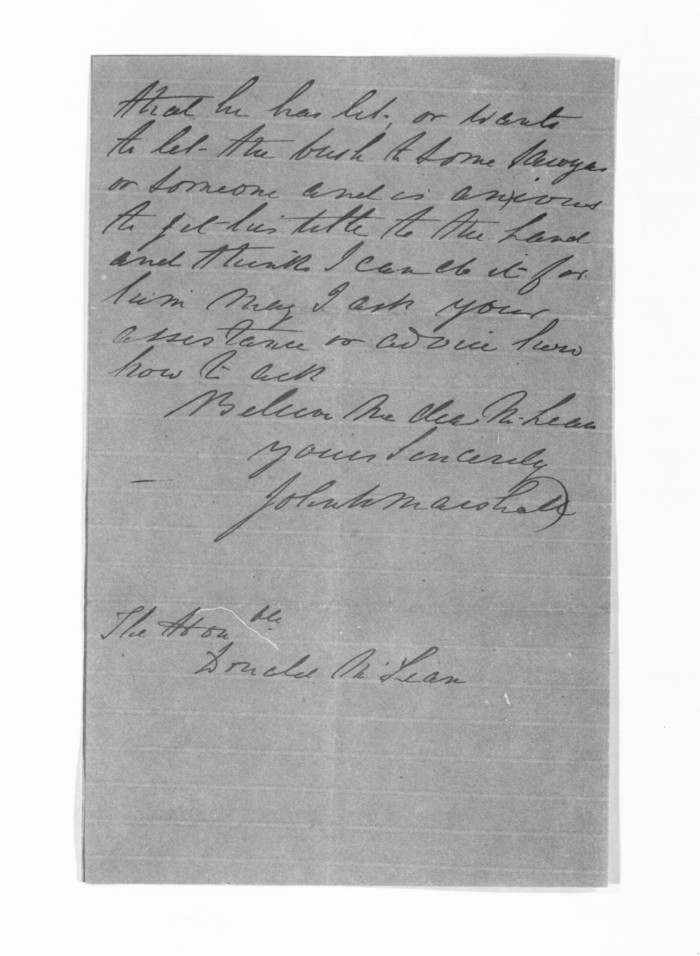 that he has let, or wants
to let the bush to some Sawyers
or someone and is anxious
to get his title to the Land
and thinks I can do it for
him May I ask your
assistance or advice how
how to act
Believe Me dear McLean
yours Sincerely
John Marshall
The Honble
Donald McLean